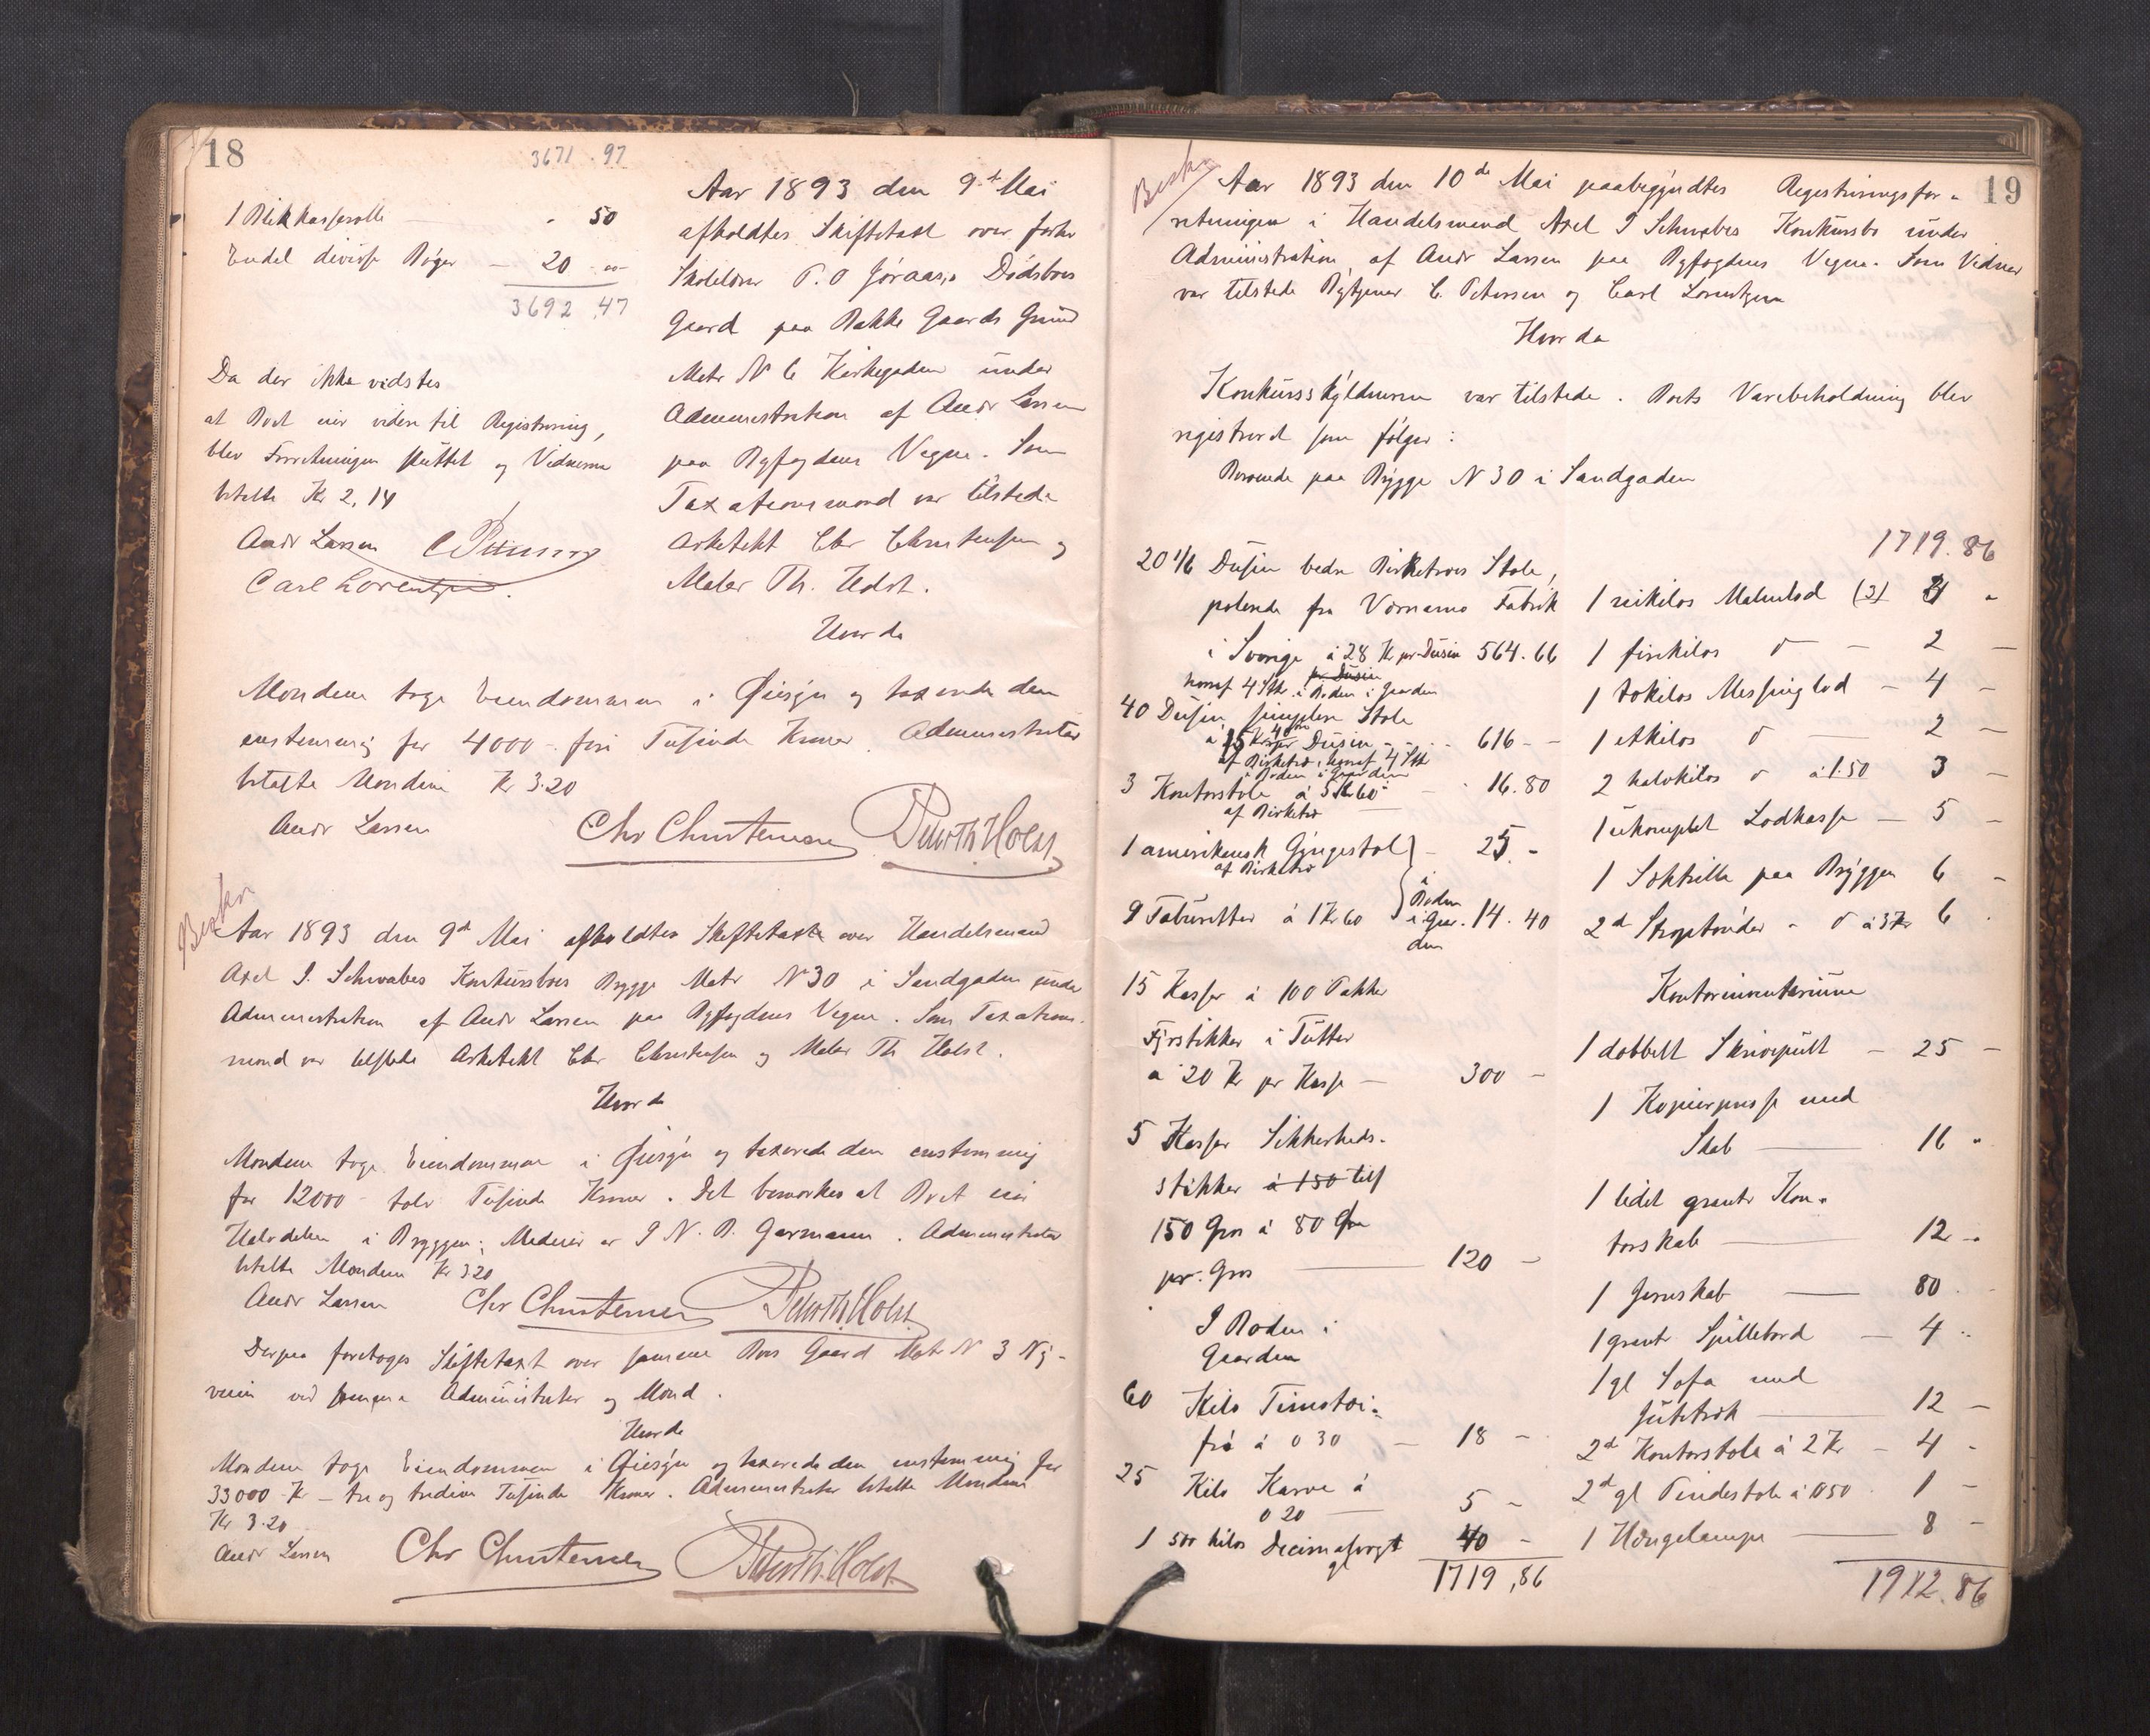 18
3671.97
1 Blikkasserolle - " 50
Endel diverse Bøger - 20 . "
3692.47
Da der ikke vidstes
at Boet eier videre til Registrering,
blev Forretningen sluttet og Vidnerne
betalte Kr 2,14
Andr Larsen C Petersen
Carl Lorentzen.
Aar 1893 den 9de Mai
afholdtes Skiftetaxt over forhv
Skolelærer P. O Jøraas,s Dødsboes
Gaard paa Bakke Gaards Grund
Matr N 6 Kirkegaden under
Administration af Andr Larsen
paa Byfogdens Vegne. Som
Taxationsmænd var tilstede
Arkitekt Chr Christensen og
Maler Th. Holst.
Hvorda
Mændene toge Eiendommen i Øiesyn og taxerede den
enstemmig for 4000 - fire Tusinde Kroner. Administrator
betalte Mændene Kr 3.20
Andr Larsen Chr Christensen Peter Th. Holst
Beskr
Aar 1893 den 9de Mai afholdtes Skiftetaxt over Handelsmand
Axel I. Schwabes Konkursboes Brygge Matr N 30 i Sandgaden under
Administration af Andr Larsen paa Byfogdens Vegne. Som Taxations-
mænd var tilstede Arkitekt Chr Christensen og Maler Th Holst.
Hvorda
Mændene toge Eiendommen i Øiesyn og taxerede den enstemmig
for 12000 - tolv Tusinde Kroner. Det bemærkes at Boet eier
Halvdelen i Bryggen; Medeier er I N. B. Garmann. Administrator
betalte Mændene Kr 3.20
Andr Larsen Chr Christensen Peter Th. Holst
Derpaa foretoges Skiftetaxt over samme Boes Gaard Matr N 3 Ny-
veien ved samme Administrator og Mænd.
Hvorda
Mændene toge Eiendommen i Øiesyn og taxerede den enstemmig for
33000 Kr - tre og tredive Tusinde Kroner. Administrator betalte Mændene
Kr 3.20
Andr Larsen Chr Christensen Peter Th. Holst
19
Beskr
Aar 1893 den 10de Mai paabegyndtes Registreringsfor-
retningen i Handelsmand Axel I Schwabes Konkursbo under
Administration af Andr Larsen paa Byfogdens Vegne. Som Vidner
var tilstede Bytjener C. Petersen og Carl Lorentzen
Hvorda
Konkursskyldneren var tilstede. Boets Varebeholdning blev
registreret som følger:
Beroende paa Brygge N 30 i Sandgaden
20 1/6 Dusin bedre Birketræes Stole,
polerede fra Värnamo Fabrik
i Sverige á 28 Kr pr Dusin 564.66
pr Dusin
hvoraf 4 Stk. i Boden i Gaarden
40 Dusin simplere Stole
á 15 Kr 40 øre pr Dusin - 616 -
af Birketræ, hvoraf 4 Stk
i Boden i Gaarden
3 Kontorstole á 5 Kr 60 - 16.80
af Birketræ
1 amerikansk Gyngestol - 25. -
af Birketræ
9 Taburetter á 1 Kr 60 i Boden i Gaarden 14.40
15 Kasser á 100 Pakker
Fyrstikker i Tutter
á 20 Kr pr Kasse - 300 -
5 Kasser Sikkerheds-
stikker á 150 tils
150 Gros á 80 Øre
pr. Gros 120 -
I Boden i
Gaarden
60 Kilo Timotei-
frø á 0 30 - 18 -
25 Kilo Karve á
0 20 5 -
1 500 kilos Decimalvægt 40 -
gl
1719,86
1719.86
1 Malmlod (2)
1 firekilos do - 2 -
1 tokilos Messinglod - 4 -
1 etkilos do 2 -
2 halvkilos do á 1.50 3 -
1 ukomplet Lodkasse - 5 -
1 Sækketrille paa Bryggen 6 -
2de do á 3 Kr 6 .
Kontorinventarium
1 dobbelt Skrivepult - 25 -
1 Kopierpresse med
Skab 16 "
1 lidet graat Kon-
torskab 12 -
1 Jernskab 80 -
1 graat Spillebord - 4 "
1 gl Sofa med
Jutetræk 12 -
2de Kontorstole á 2 Kr - 4 -
2de gl Pindestole á 0 50 . 1 -
1 Hængelampe 8 -
1912.86